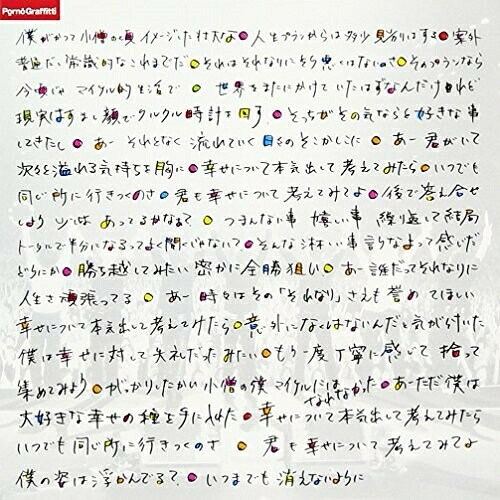 PornoGraffitti
僕がかつて小僧の頃イメージした壮大な●人生プランからは多少見劣りはする●案外
普通だし常識的なこれまでだ●それはそれなりにそう悪くはないのさ●そのプランなら
今頃じゃマイケル的生活で●世界をまたにかけていたはずなんだけれど
現実はすまし顔でクルクル時計を回す●そっちがその気ならと好きな事
してきたし●あー それとなく流れていく日々のそこかしこに●あー君がいて
次々溢れる気持ちを胸に●幸せについて本気出して考えてみたら●いつでも
同じ所に行きつくのさ●君も幸せについて考えてみてよ●後で答え合せ
しよう 少しは あってるかなぁ?●つまんない事 嬉しい事 繰り返して結局
トータルで半分になるってよく聞くじゃない?●そんな淋しい事言うなよって感じだし
どうにか●勝ち越してみたい密かに全勝狙い●あー誰だってそれなりに
人生を頑張ってる●あー時々はその「それなり」さえも誉めてほしい
幸せについて本気出して考えてみたら●意外になくはないんだと気が付いた
僕は幸せに対して失礼だったみたい●もう一度丁寧に感じて拾って
集めてみよう●がっかりしたかい小僧の僕マイケルにはなれなかった●あーただ僕は
大好きな幸せの種を手に入れた●幸せについて本気出して考えてみたら
いつでも同じ所に行きつくのさ●君も幸せについて考えてみてよ
僕の姿は浮かんでる?●いつまでも消えないように